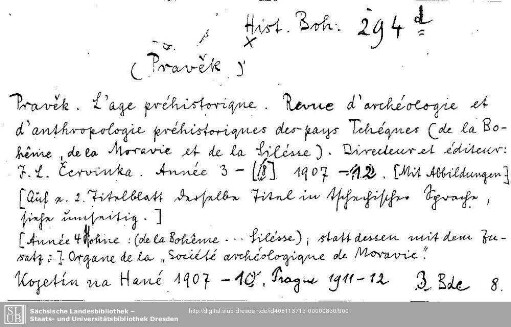 Hist. Boh. 294 d
(Pravěk)
Pravěk. L'age préhistorique. Revue d'archéologie et
d'anthropologie préhistoriques des pays Tchéques (de la Bo-
hême, de la Moravie et de la Silésie). Directeur et éditeur:
J. L. Červinka. Année 3 - [8] 1907 - 12. [Mit Abbildungen]
[Auf e. 2. Titelblatt derselbe Titel in tschechischer Sprache,
siehe umseitig.]
[Année 4 ohne: (de la Bohême ... Silésie), statt dessen mit dem Zu-
satz:] Organe de la "Société archéologique de Moravie".
Kojetín na Hané 1907 - 10, Prague 1911 - 12 3 Bde 8.
Sächsische Landesbibliothek –
Staats- und Universitätsbibliothek Dresden